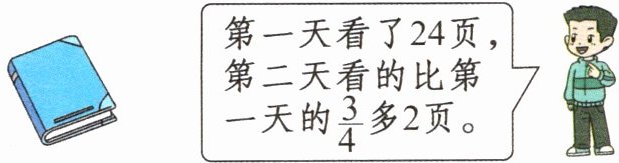 第一天看了24页，
第二天看的比第
一天的3/4多2页。